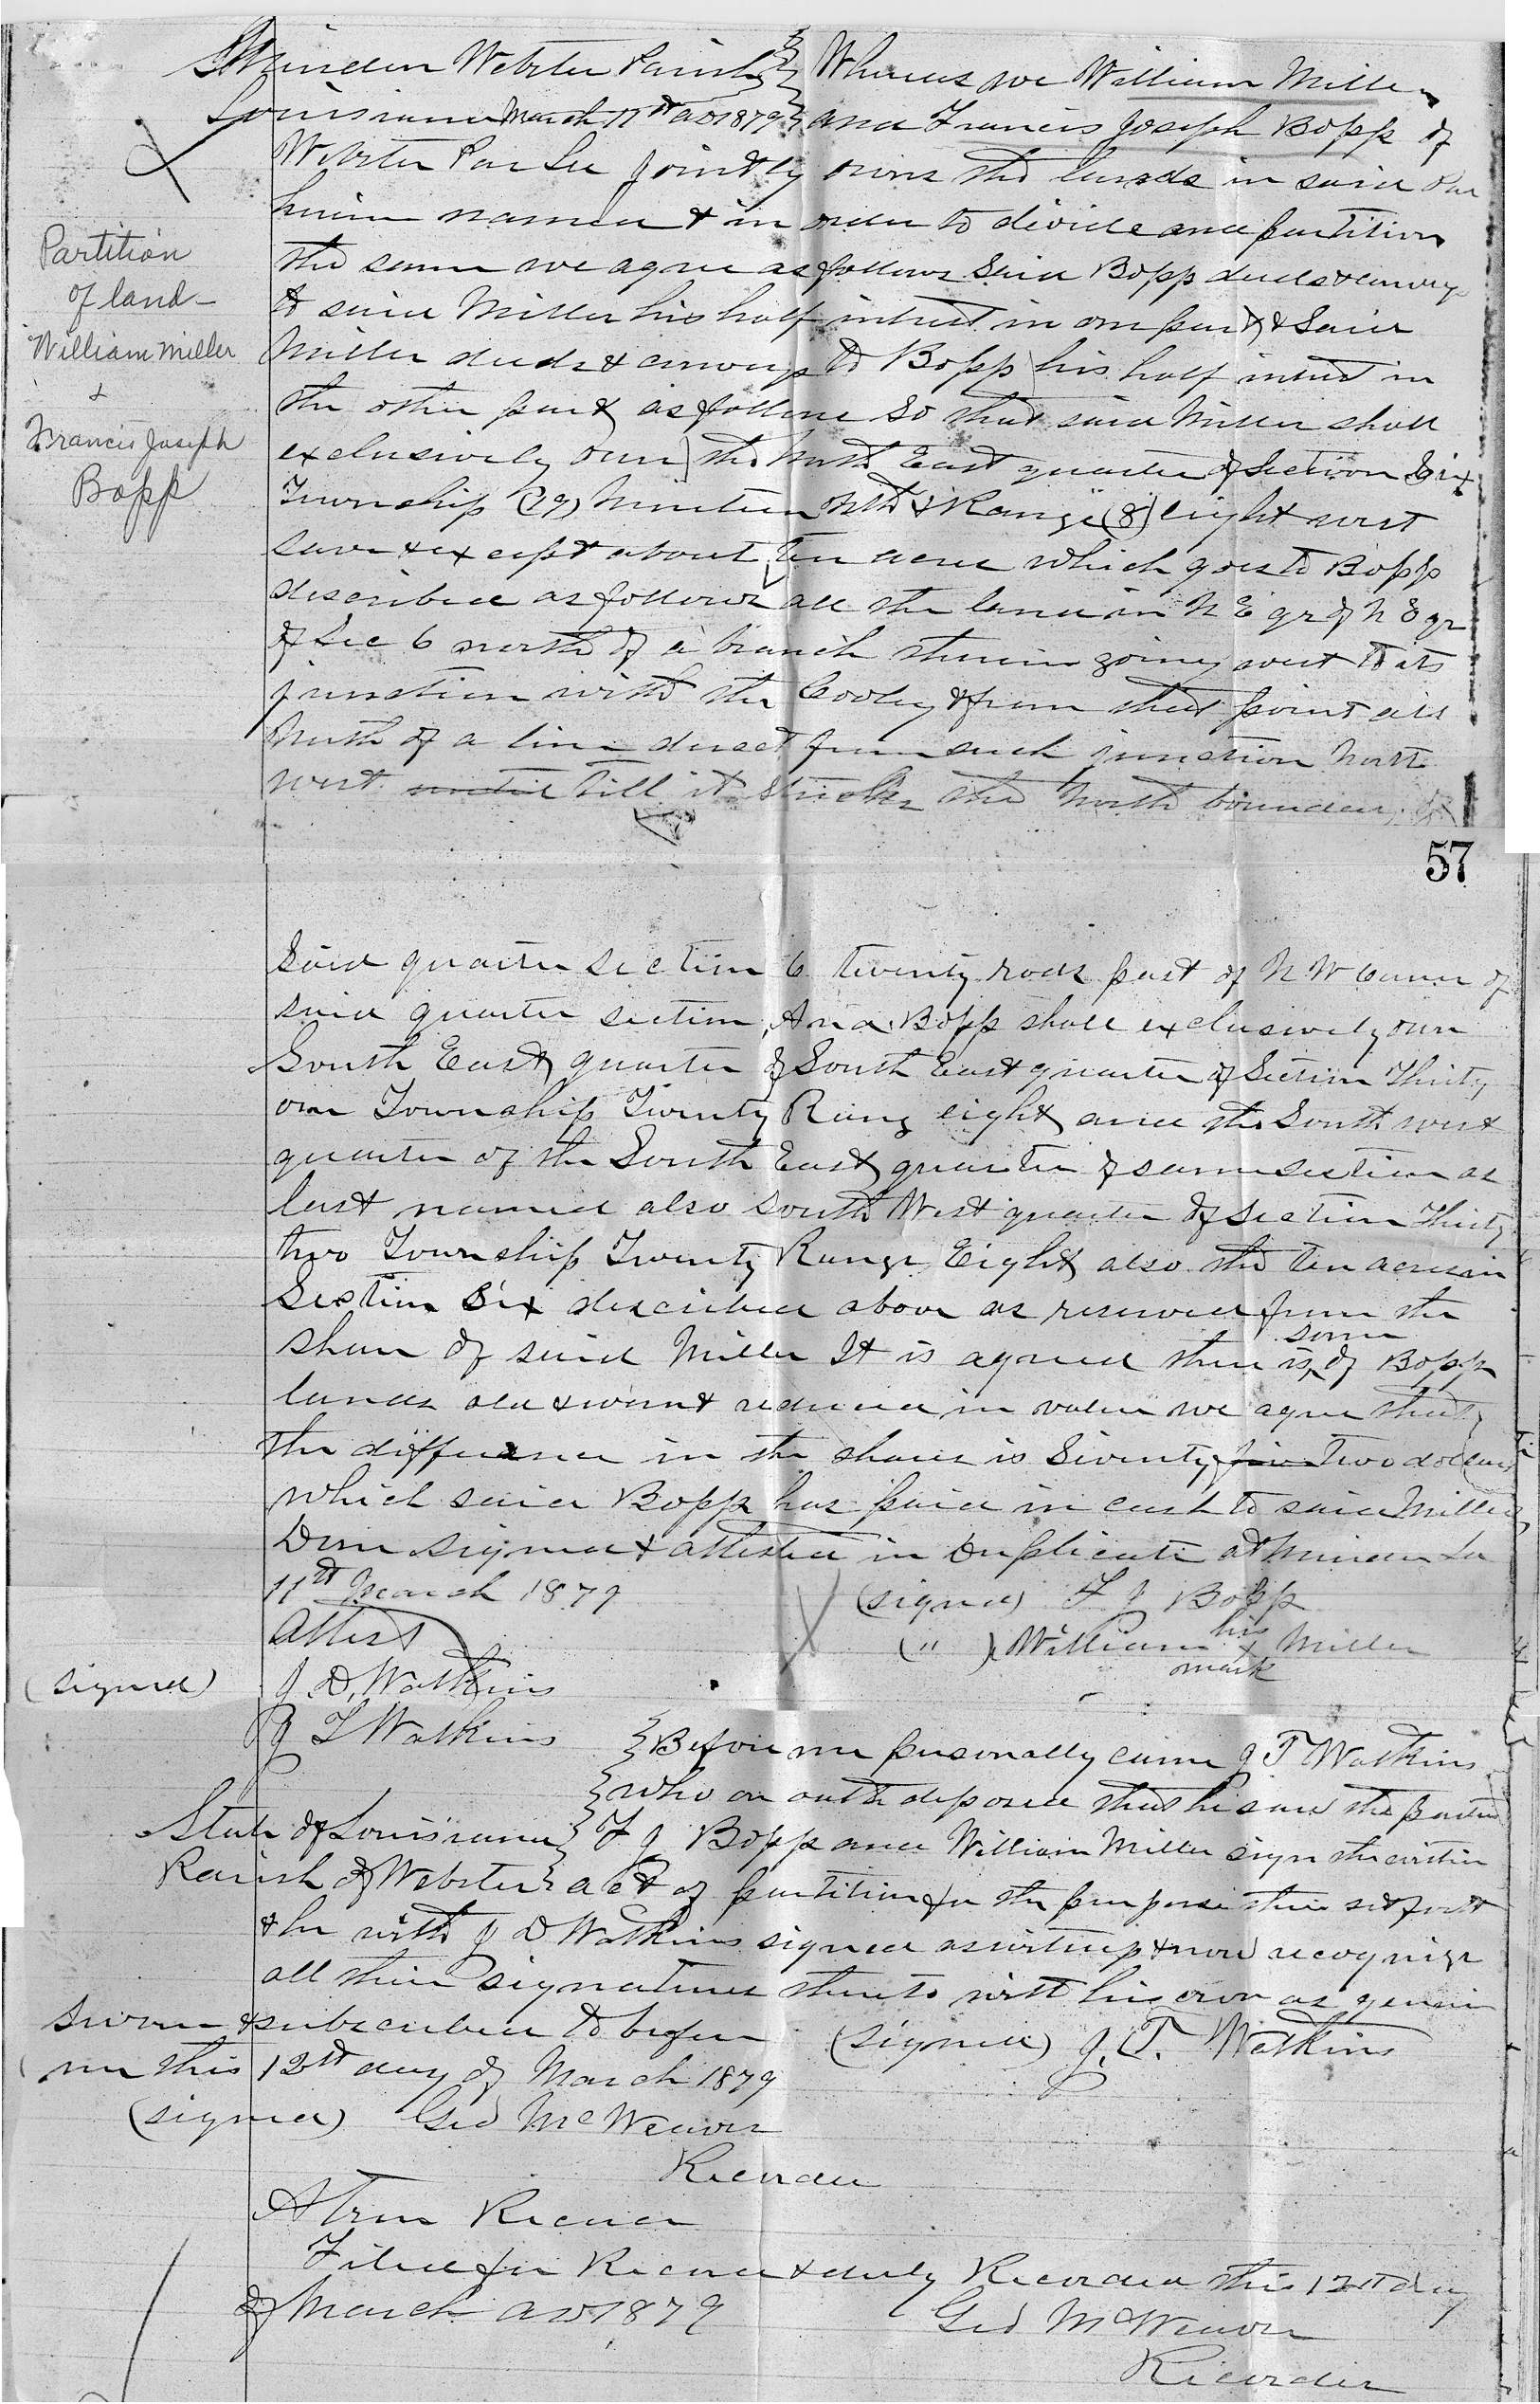 Minden Webster Parish } Whereas we William Miller
Louisiana March 11th AD 1879 } and Francis Joseph Bopp of
Webster Par La jointly own the lands in said Par
herein named & in order to divide and partition
the same we agree as follows Said Bopp deeds & conveys
to said Miller his half interest in one part & Said
Miller deeds & conveys to Bopp his half interest in
the other part as follows So that said Miller shall
exclusively own the North East quarter of Section Six
Township (19) Nineteen North & Range (8) eight west
save & except about ten acres which goes to Bopp
described as follows all the land in N E qr of N E qr
of Sec 6 north of a branch therein going west to its
junction with the Cooley & from that point all
North of a line direct from such junction North
west until till it strikes the North boundary of
Partition
of land -
William Miller
&
Francis Joseph
Bopp
57
Said quarter section 6 twenty rods past of N W Corner of
said quarter section, And Bopp shall exclusively own
South East quarter of South East quarter of Section Thirty
one Township Twenty Range eight and the South west
quarter of the South East quarter of same section as
last named also South West quarter of Section Thirty
two Township Twenty Range Eight also the ten acres in
Section Six described above as reserved from the
share of said Miller It is agreed there is some of Bopp
lands old & worn & reduced in value we agree that
the difference in the shares is Seventy five Two dollars
which said Bopp has paid in cash to said Miller
Done signed & attested in Duplicate at Minden La
11th March 1879 (signed) F J Bopp
Attest (") William his x mark Miller
(signed) J. D. Watkins
J T Watkins
} Before me personally came J T Watkins
} who on oath deposed that he saw the parties
State of Louisiana } F J Bopp and William Miller sign the written
Parish of Webster } act of partition for the purposes there set forth
& he with J D Watkins signed as witness & now recognize
all their signatures thereto with his own as genuine
Sworn & subscribed to before (signed) J. T. Watkins
me this 12th day of March 1879
(signed) Geo McWeaver
Recorder
A true Record
Filed for Record & duly Recorded this 12th day
of March AD 1879 Geo McWeaver
Recorder